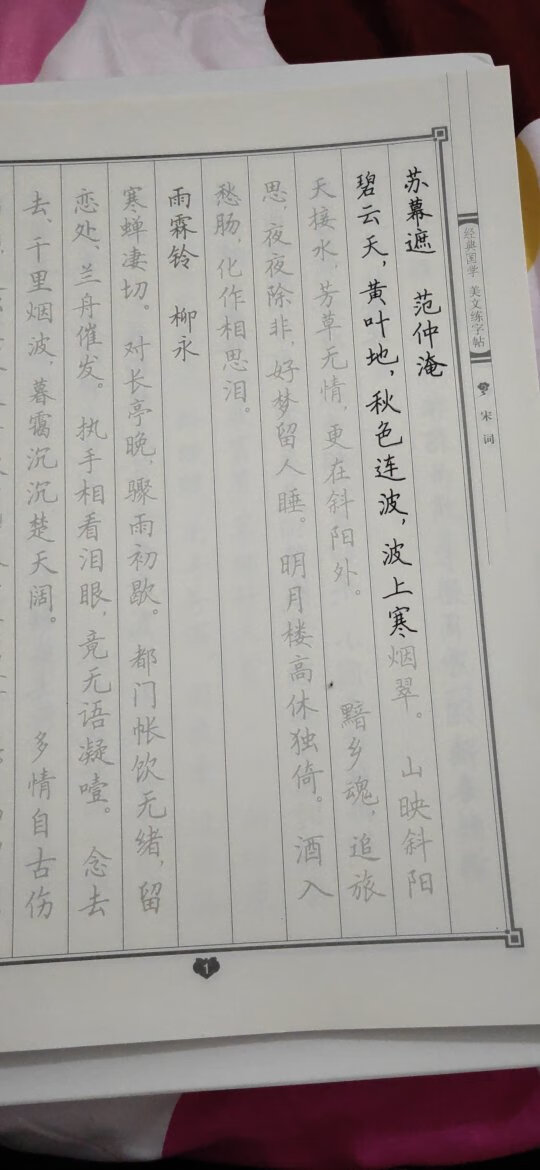 经典国学 美文练字帖
宋词
苏幕遮 范仲淹
碧云天，黄叶地，秋色连波，波上寒烟翠。 山映斜阳
天接水，芳草无情，更在斜阳外。 黯乡魂，追旅
思，夜夜除非，好梦留人睡。明月楼高休独倚。 酒入
愁肠，化作相思泪。
雨霖铃 柳永
寒蝉凄切。对长亭晚，骤雨初歇。 都门帐饮无绪，留
恋处、兰舟催发。 执手相看泪眼，竟无语凝噎。 念去
去、千里烟波，暮霭沉沉楚天阔。 多情自古伤
1